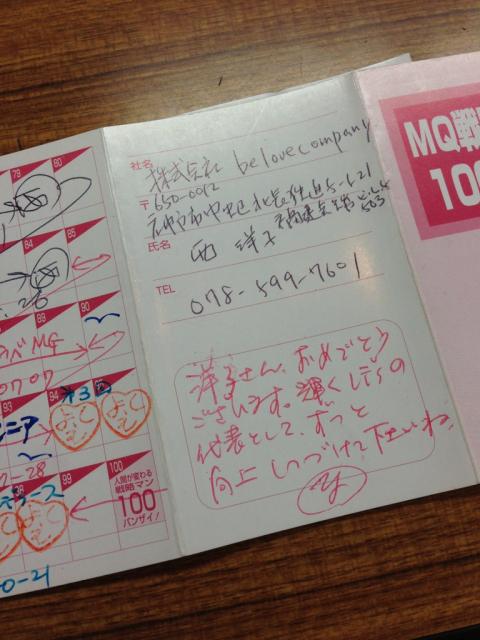 79
80
84
85
89
90
べMG
0707
93
94
95
オ30
ニア
よくできた
-28
98
99
100
人間が変わる
戦略マン
100
バンザイ!
0-21
社名
株式会社 belovecompany
〒650-0012
神戸市中央区北長狭通5-1-21
503
氏名
西 洋子
TEL
078-599-7601
洋子さん、おめでとう
ございます。輝くLTSの
代表として、ずっと
向上しつづけて下さいね
MQ戦
100